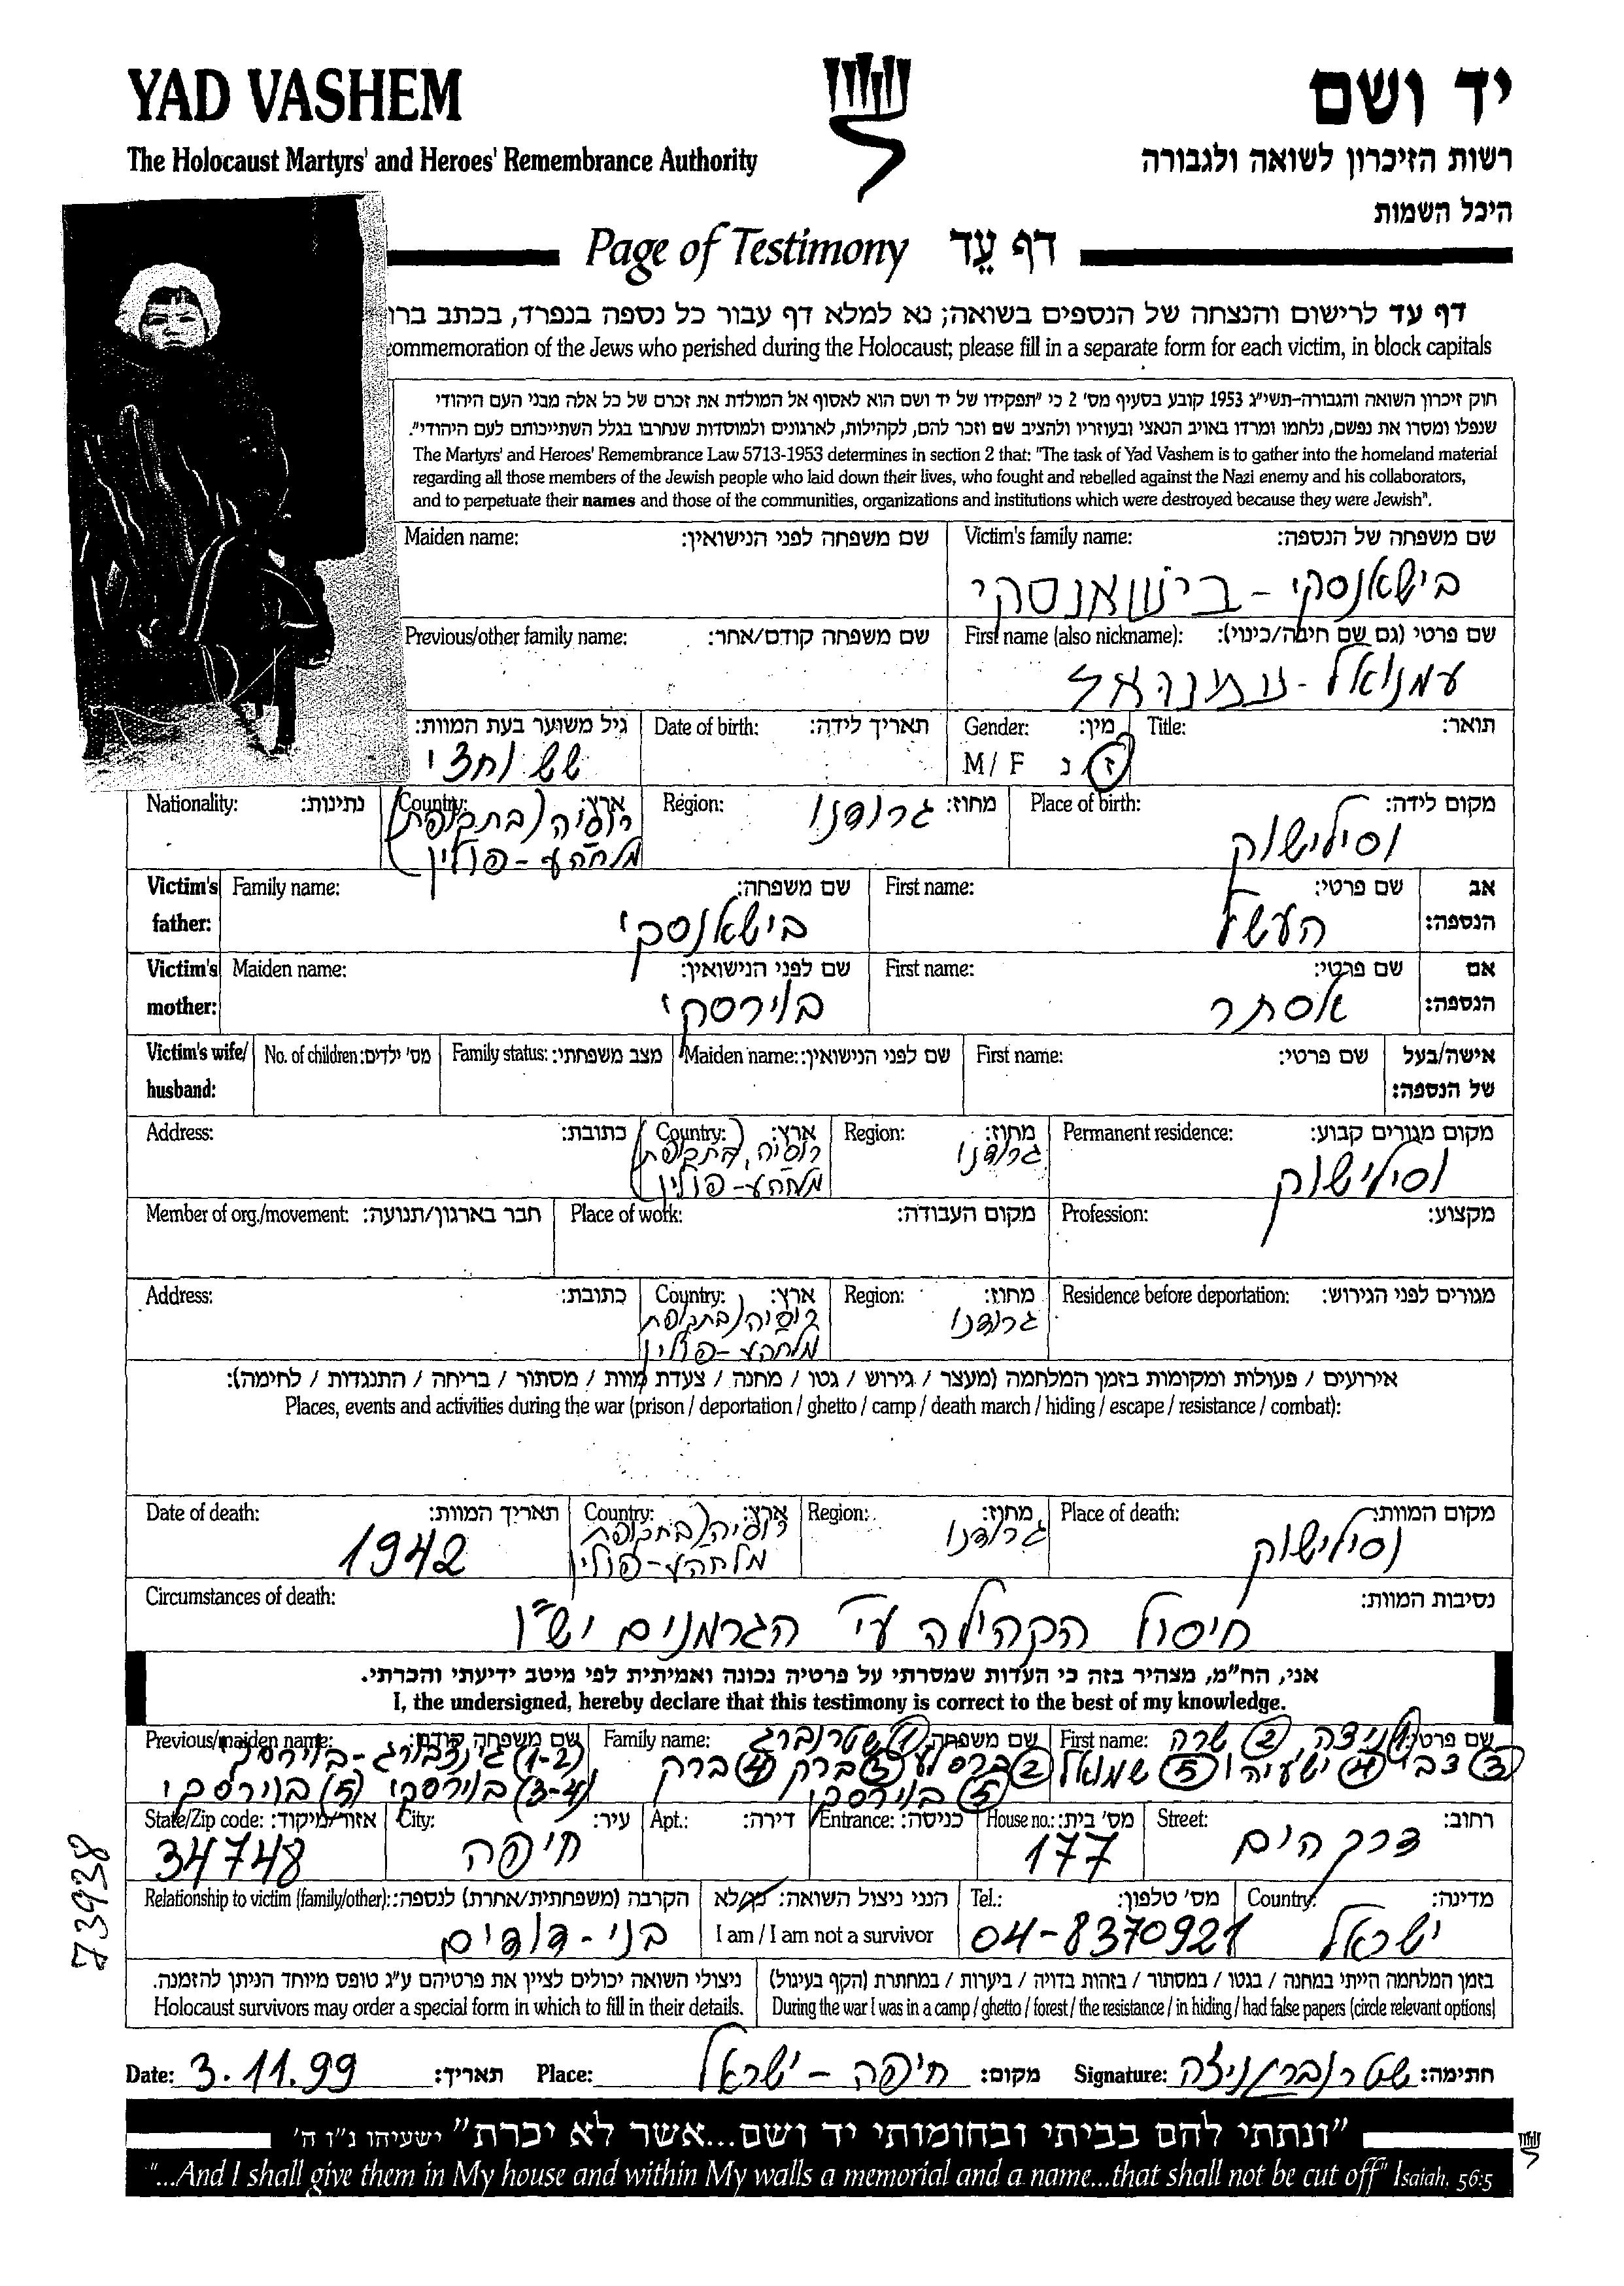 YAD VASHEM
יד ושם
The Holocaust Martyrs' and Heroes' Remembrance Authority
רשות הזיכרון לשואה ולגבורה
היכל השמות
Page of Testimony דף עֵד
דף עד לרישום והנצחה של הנספים בשואה; נא למלא דף עבור כל נספה בנפרד, בכתב ברו
commemoration of the Jews who perished during the Holocaust; please fill in a separate form for each victim, in block capitals
חוק זיכרון השואה והגבורה-תשי״ג 1953 קובע בסעיף מס' 2 כי ״תפקידו של יד ושם הוא לאסוף אל המולדת את זכרם של כל אלה מבני העם היהודי
שנפלו ומסרו את נפשם, נלחמו ומרדו באויב הנאצי ובעוזריו ולהציב שם וזכר להם, לקהילות, לארגונים ולמוסדות שנחרבו בגלל השתייכותם לעם היהודי״.
The Martyrs' and Heroes' Remembrance Law 5713-1953 determines in section 2 that: "The task of Yad Vashem is to gather into the homeland material
regarding all those members of the Jewish people who laid down their lives, who fought and rebelled against the Nazi enemy and his collaborators,
and to perpetuate their names and those of the communities, organizations and institutions which were destroyed because they were Jewish".
שם משפחה של הנספה: Victim's family name: שם משפחה לפני הנישואין: Maiden name:
בישאנסקי - בישאנסקי
שם פרטי (גם שם חיבה/כינוי): First name (also nickname): שם משפחה קודם/אחר: Previous/other family name:
עמנואל - עמנואל
תואר: Title: מין: Gender: תאריך לידה: Date of birth: גיל משוער בעת המוות:
ז / נ M / F שש וחצי
מקום לידה: Place of birth: מחוז: Region: ארץ: Country: נתינות: Nationality:
וסילישוק גרודנו רוסיה (בתקופת
מלחה״ע - פולין)
אב הנספה: שם פרטי: First name: שם משפחה: Family name: Victim's father:
העשל בישאנסקי
אם הנספה: שם פרטי: First name: שם לפני הנישואין: Maiden name: Victim's mother:
אסתר בוירסקי
אישה/בעל של הנספה: שם פרטי: First name: שם לפני הנישואין: Maiden name: מצב משפחתי: Family status: מס' ילדים: No. of children: Victim's wife/husband:
מקום מגורים קבוע: Permanent residence: מחוז: Region: ארץ: Country: כתובת: Address:
וסילישוק גרודנו רוסיה (בתקופת
מלחה״ע - פולין)
מקצוע: Profession: מקום העבודה: Place of work: חבר בארגון/תנועה: Member of org./movement:
מגורים לפני הגירוש: Residence before deportation: מחוז: Region: ארץ: Country: כתובת: Address:
גרודנו רוסיה (בתקופת
מלחה״ע - פולין)
אירועים / פעולות ומקומות בזמן המלחמה (מעצר / גירוש / גטו / מחנה / צעדת מוות / מסתור / בריחה / התנגדות / לחימה):
Places, events and activities during the war (prison / deportation / ghetto / camp / death march / hiding / escape / resistance / combat):
מקום המוות: Place of death: מחוז: Region: ארץ: Country: תאריך המוות: Date of death:
וסילישוק גרודנו רוסיה (בתקופת 1942
מלחה״ע - פולין)
נסיבות המוות: Circumstances of death:
חיסול הקהילה ע״י הגרמנים יש״ו
אני, הח״מ, מצהיר בזה כי העדות שמסרתי על פרטיה נכונה ואמיתית לפי מיטב ידיעתי והכרתי.
I, the undersigned, hereby declare that this testimony is correct to the best of my knowledge.
שם פרטי: First name: שם משפחה: Family name: שם משפחה קודם: Previous/maiden name:
(1) ניצה (2) שרה (1) שטרנברג (1-2) גינצבורג - בוירסקי
(3) צבי (4) ישעיה (5) שמואל (2) ברסלע (3) ברק (4) ברק (3-4) בוירסקי (5) בוירסקי
(5) בוירסקי
רחוב: Street: מס' בית: House no.: כניסה: Entrance: דירה: Apt.: עיר: City: אזור/מיקוד: State/Zip code:
דרך הים 177 חיפה 34748
מדינה: Country: מס' טלפון: Tel.: הנני ניצול השואה: כן/לא הקרבה (משפחתית/אחרת) לנספה: Relationship to victim (family/other):
ישראל 04-8370921 I am / I am not a survivor בני-דודים
73938
בזמן המלחמה הייתי במחנה / בגטו / במסתור / בזהות בדויה / ביערות / במחתרת (הקף בעיגול)
During the war I was in a camp / ghetto / forest / the resistance / in hiding / had false papers (circle relevant options)
ניצולי השואה יכולים לציין את פרטיהם ע״ג טופס מיוחד הניתן להזמנה.
Holocaust survivors may order a special form in which to fill in their details.
Date: 3.11.99 תאריך: Place: חיפה - ישראל מקום: Signature: שטרנברג ניצה חתימה:
״ונתתי להם בביתי ובחומותי יד ושם...אשר לא יכרת״ ישעיהו נ״ו ה'
"...And I shall give them in My house and within My walls a memorial and a name...that shall not be cut off" Isaiah, 56:5